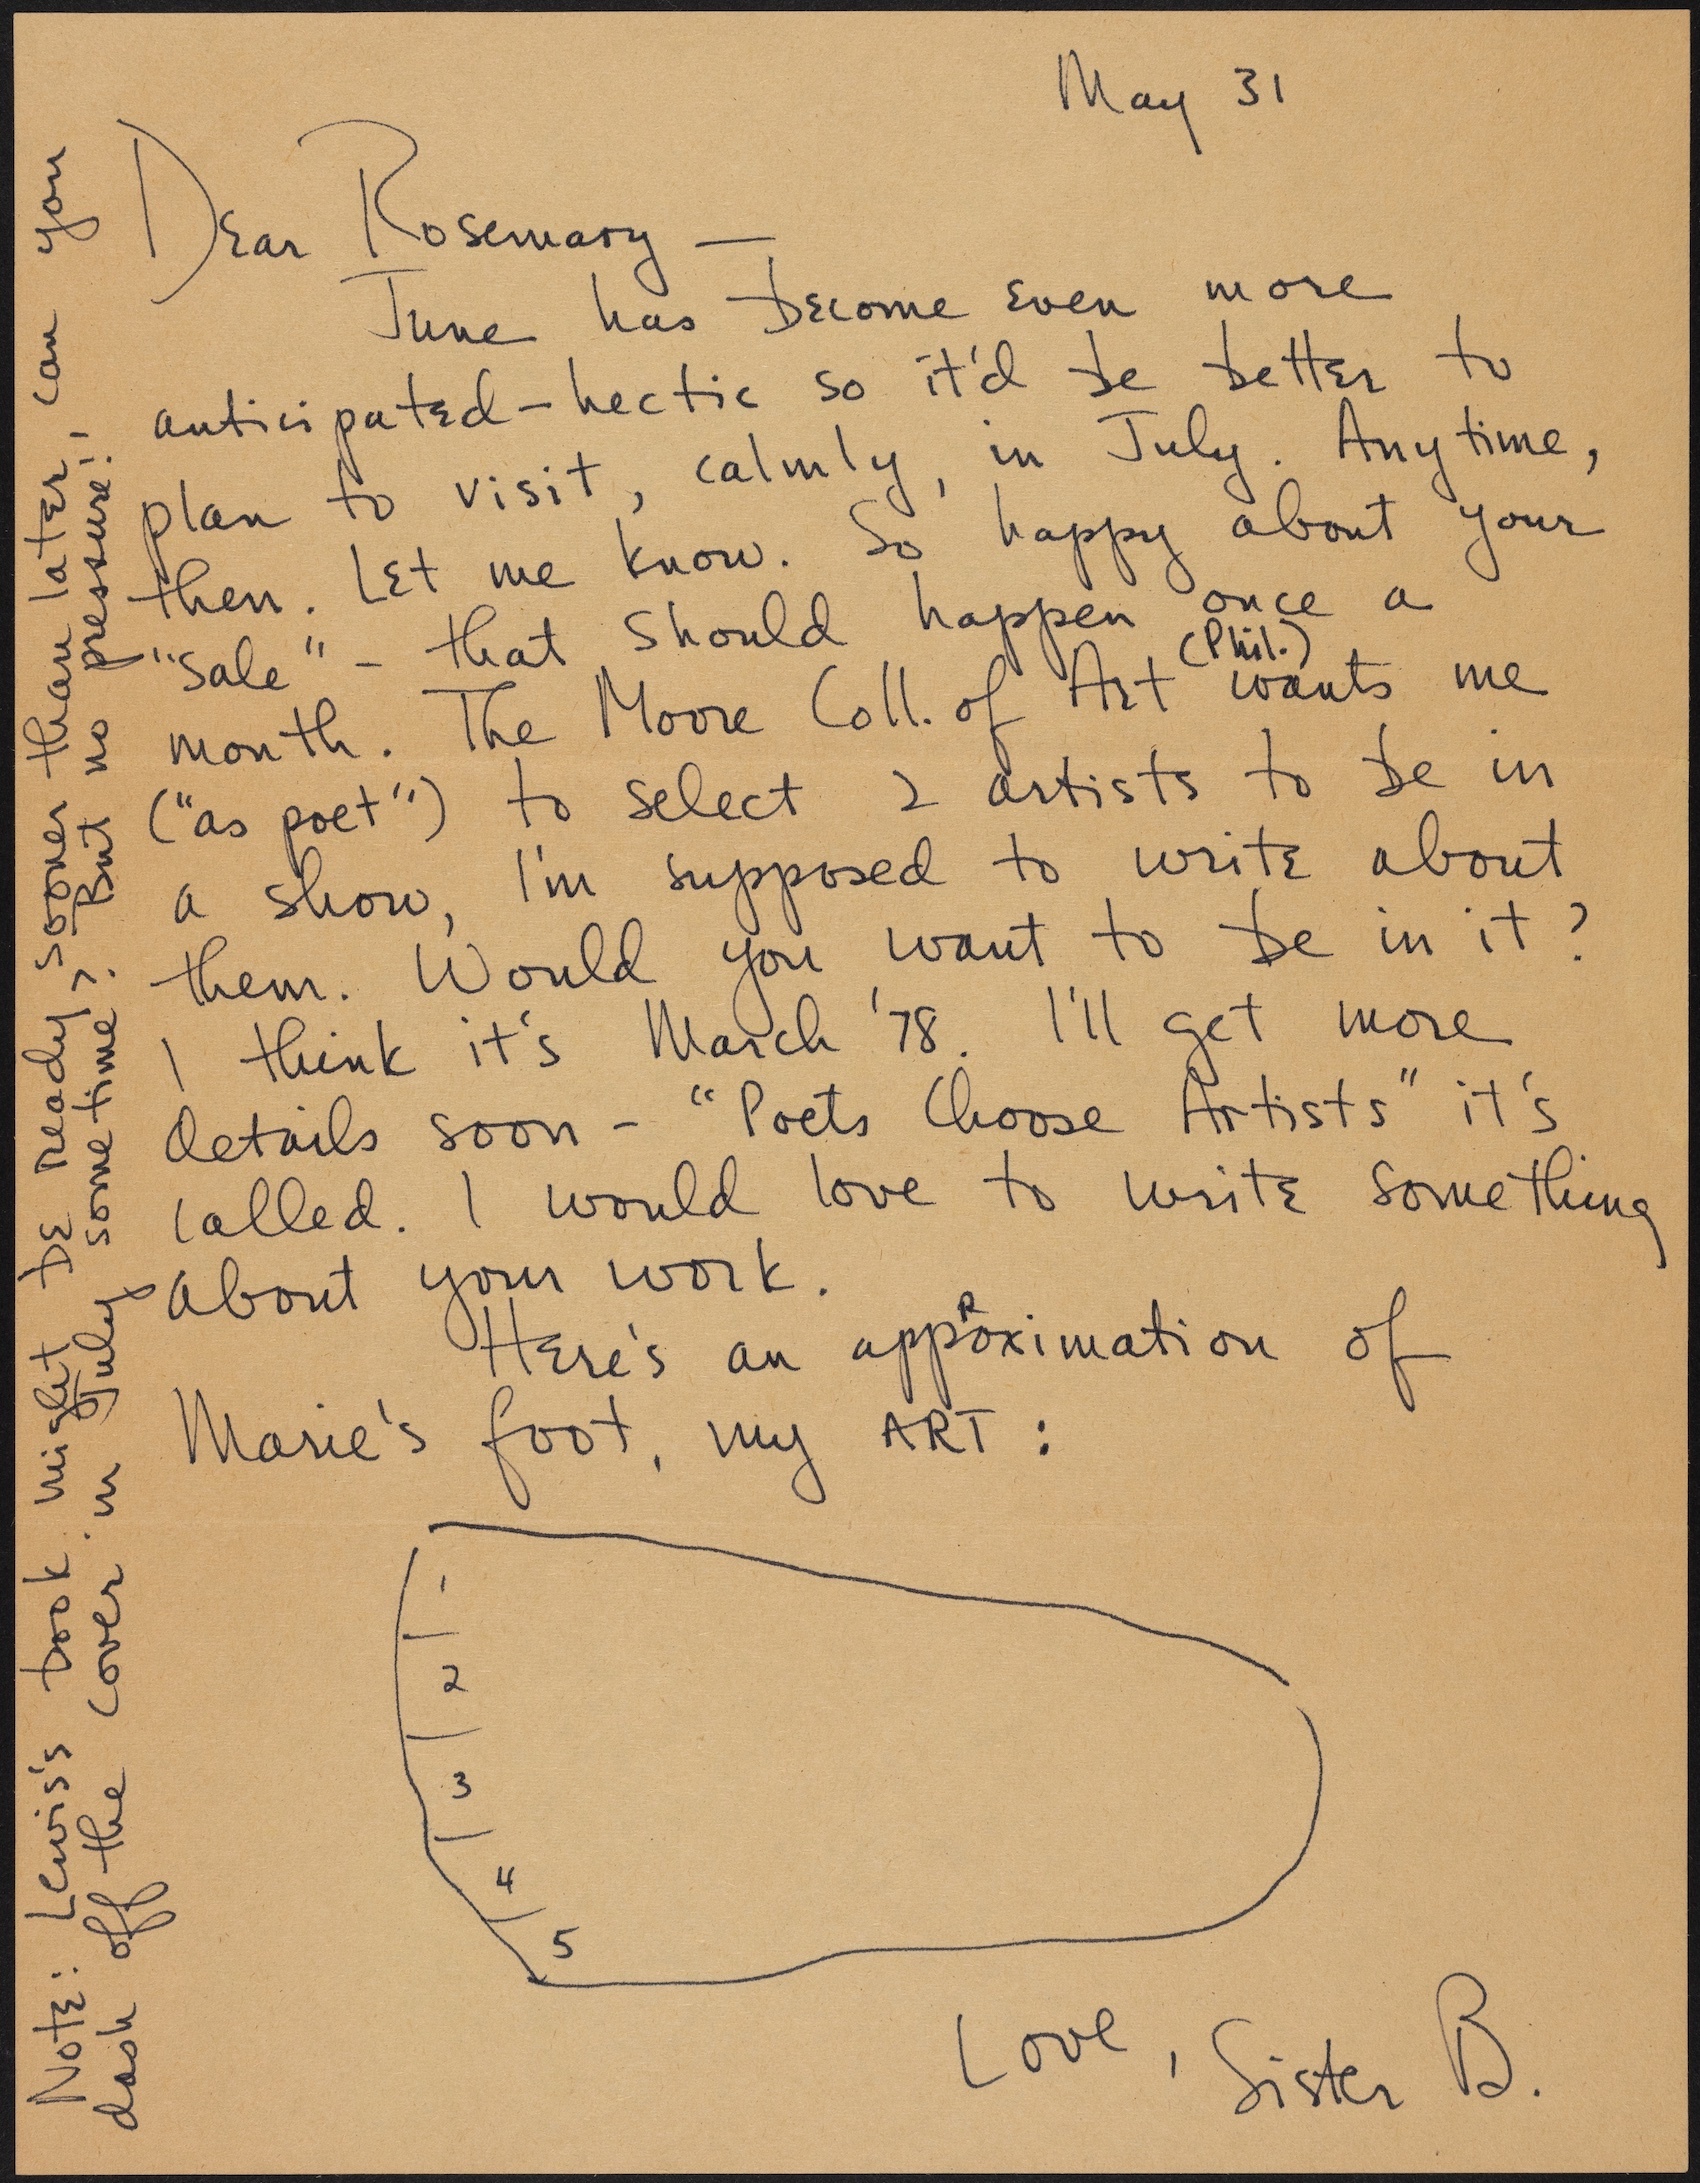 May 31
Dear Rosemary —
June has become even more
anticipated-hectic so it'd be better to
plan to visit, calmly, in July. Anytime,
then. Let me know. So happy about your
"sale" - that should happen once a
month. The Moore Coll. of Art (Phil.) wants me
("as poet") to select 2 artists to be in
a show, I'm supposed to write about
them. Would you want to be in it?
I think it's March '78. I'll get more
details soon - "Poets Choose Artists" it's
called. I would love to write something
about your work.
Here's an approximation of
Marie's foot, my ART:
1
2
3
4
5
Love, Sister B.
Note: Lewis's book might be ready sooner than later, can you
dash off the cover in July sometime? But no pressure!!